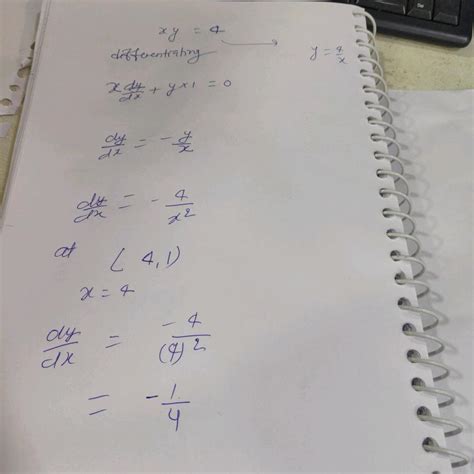 xy = 4
differentiating → y = 4/x
x dy/dx + y×1 = 0
dy/dx = - y/x
dy/dx = - 4/x²
at (4,1)
x = 4
dy/dx = -4/(4)²
= -1/4